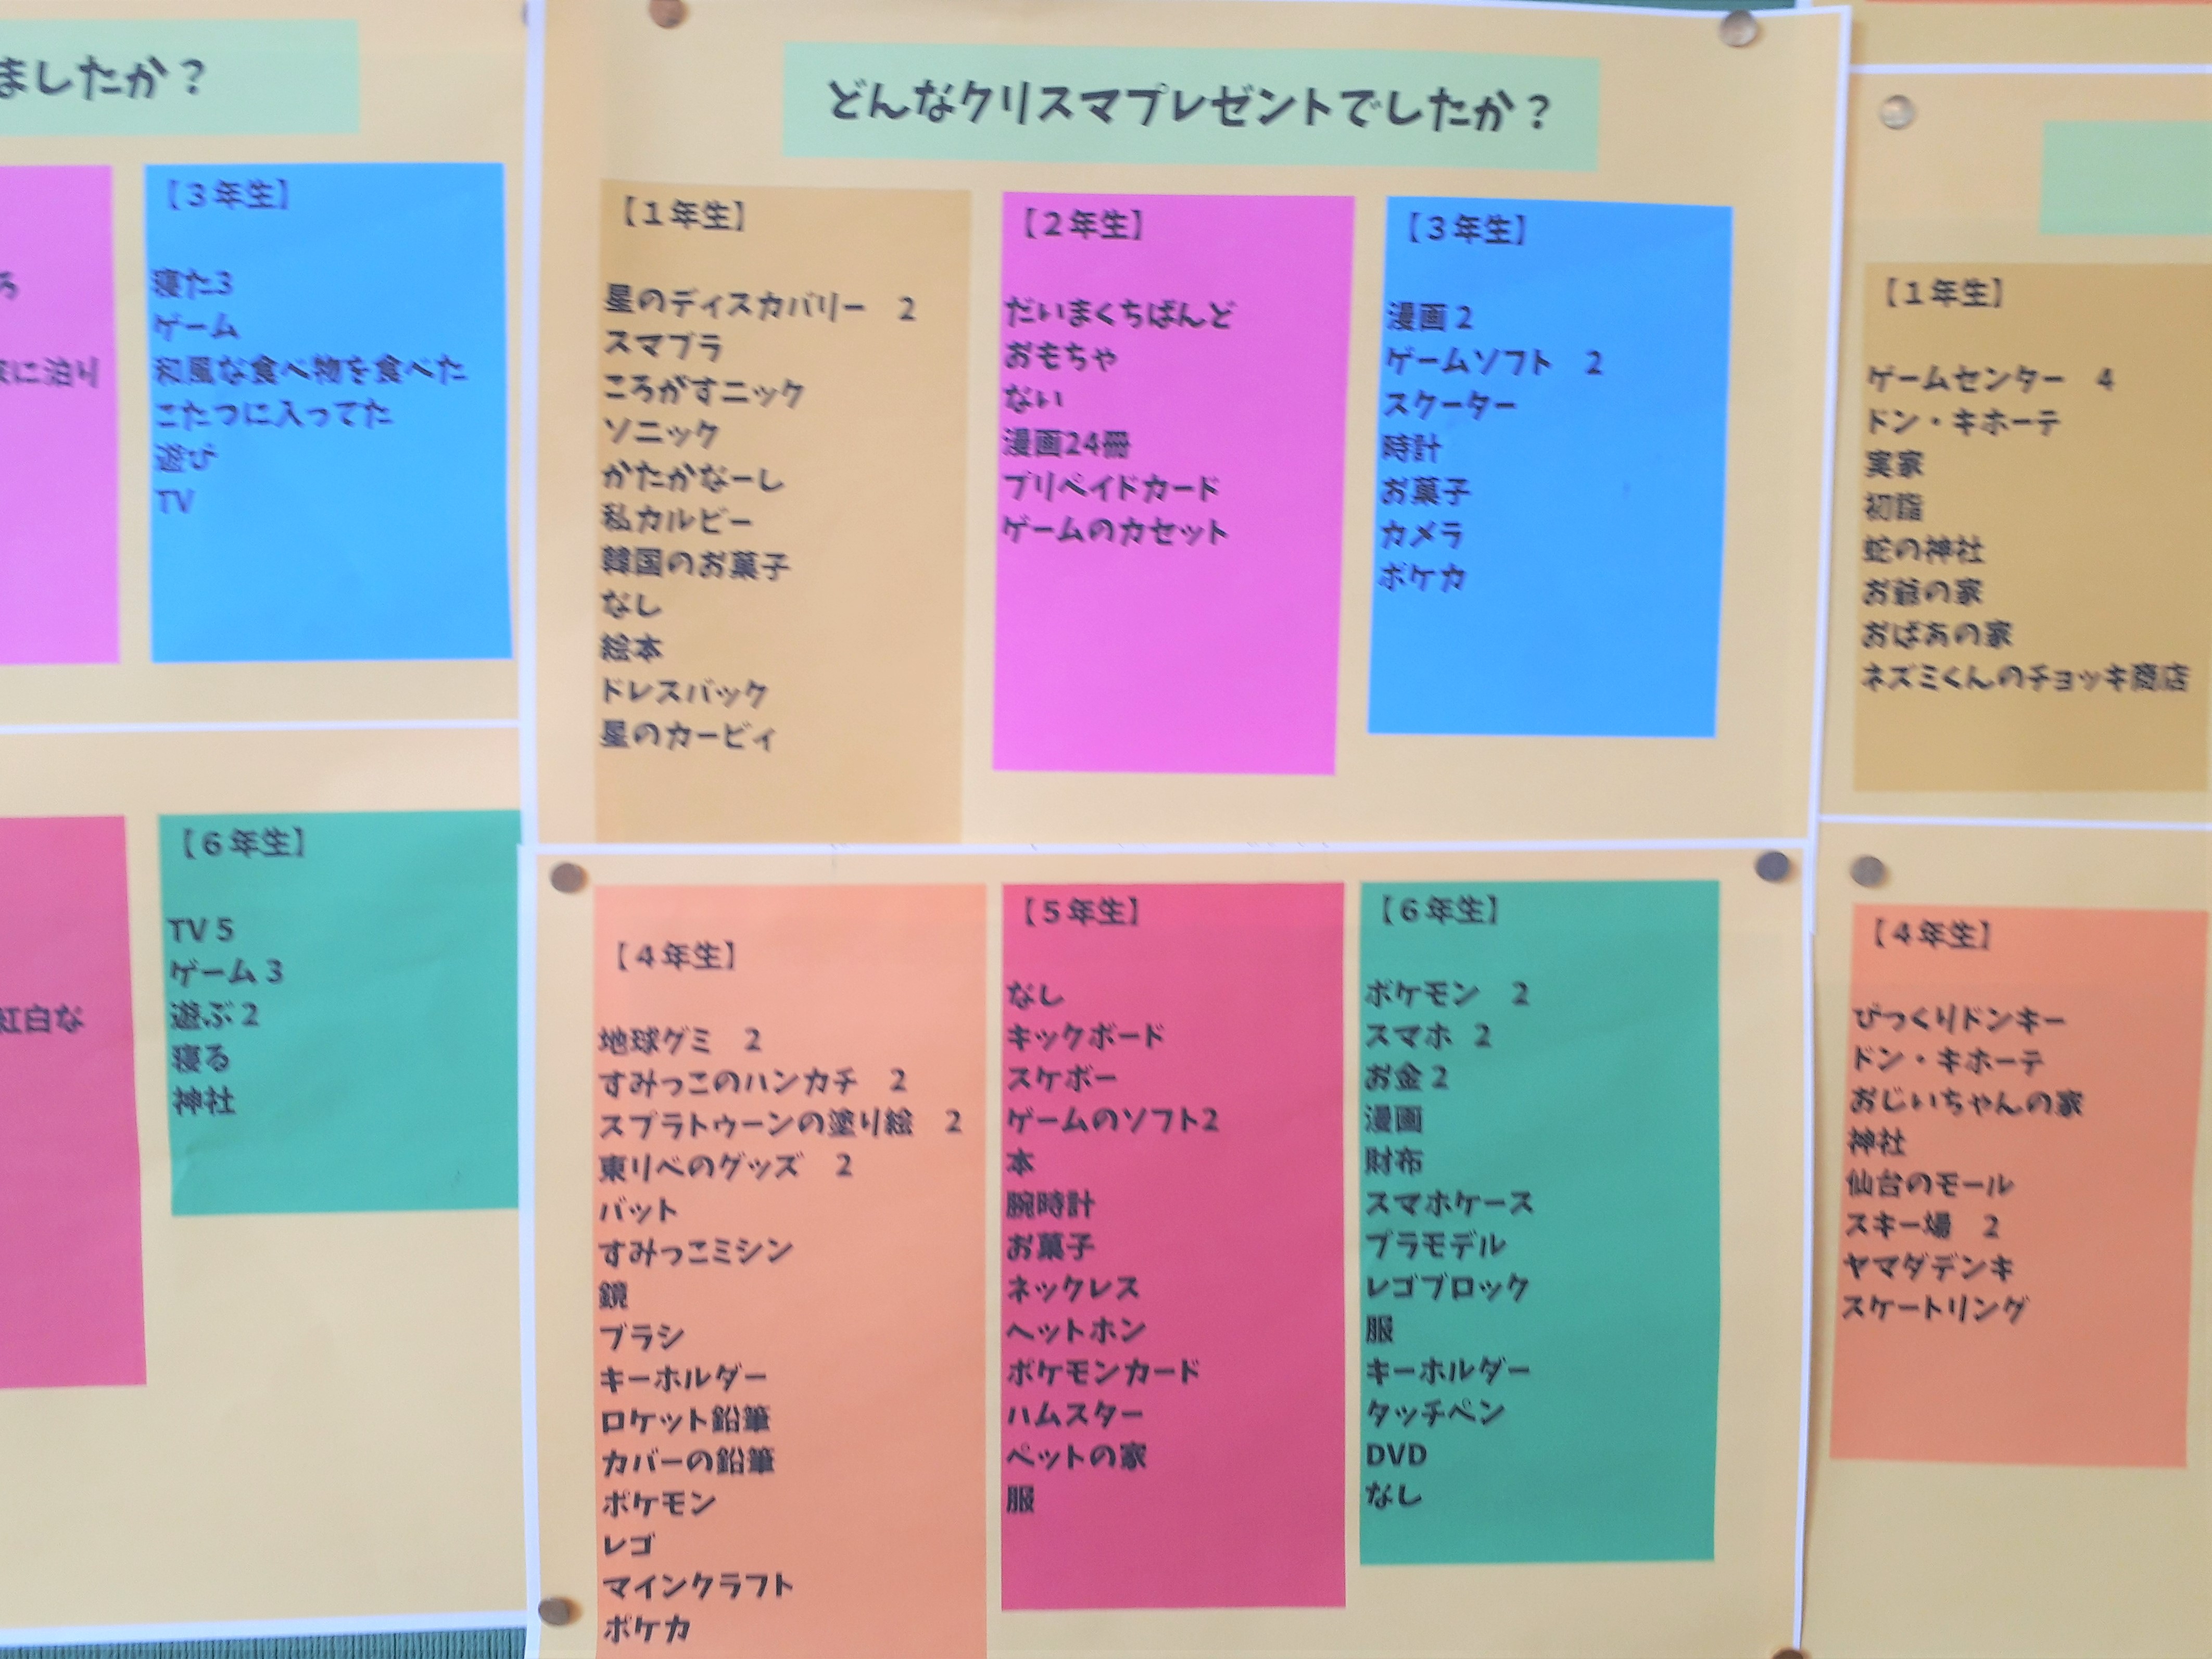 ましたか？
に泊り
【３年生】
寝た3
ゲーム
和風な食べ物を食べた
こたつに入ってた
遊び
TV
紅白な
【６年生】
TV 5
ゲーム 3
遊ぶ 2
寝る
神社
どんなクリスマプレゼントでしたか？
【１年生】
星のディスカバリー　2
スマブラ
ころがすニック
ソニック
かたかなーし
私カルビー
韓国のお菓子
なし
絵本
ドレスバック
星のカービィ
【２年生】
だいまくちばんど
おもちゃ
ない
漫画24冊
プリペイドカード
ゲームのカセット
【３年生】
漫画 2
ゲームソフト　2
スクーター
時計
お菓子
カメラ
ポケカ
【４年生】
地球グミ　2
すみっこのハンカチ　2
スプラトゥーンの塗り絵　2
東リベのグッズ　2
バット
すみっこミシン
鏡
ブラシ
キーホルダー
ロケット鉛筆
カバーの鉛筆
ポケモン
レゴ
マインクラフト
ポケカ
【５年生】
なし
キックボード
スケボー
ゲームのソフト2
本
腕時計
お菓子
ネックレス
ヘットホン
ポケモンカード
ハムスター
ペットの家
服
【６年生】
ポケモン　2
スマホ　2
お金 2
漫画
財布
スマホケース
プラモデル
レゴブロック
服
キーホルダー
タッチペン
DVD
なし
【１年生】
ゲームセンター　4
ドン・キホーテ
実家
初詣
蛇の神社
お爺の家
おばあの家
ネズミくんのチョッキ商店
【４年生】
びっくりドンキー
ドン・キホーテ
おじいちゃんの家
神社
仙台のモール
スキー場　2
ヤマダデンキ
スケートリング